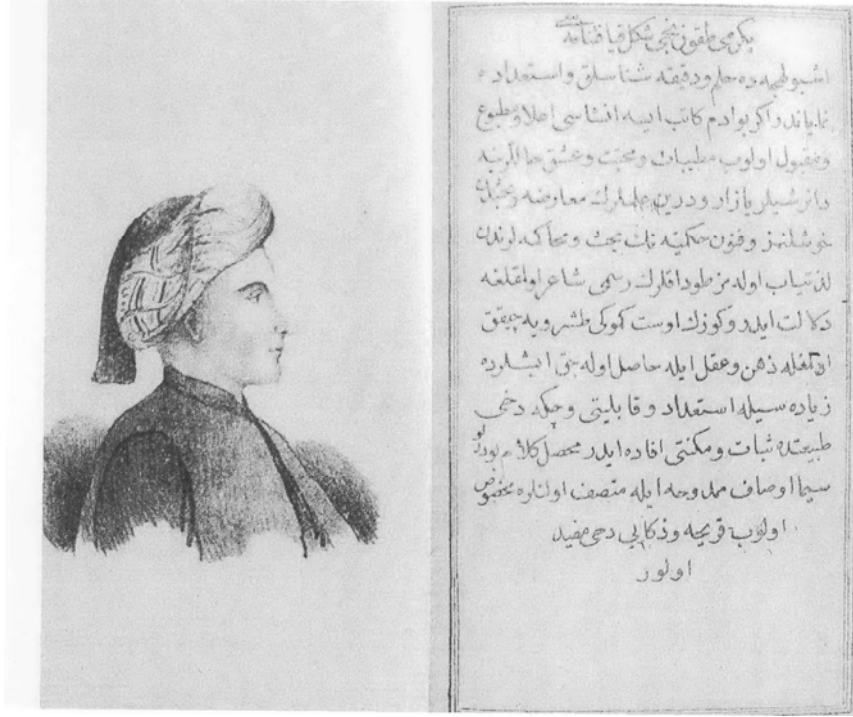 یکرمی طقوزنجی شکل قیافتنامه
اشبو طبیعه ده حلم ودقیقه شناسلق واستعداده
نمایاندر اکر بوادم کاتب ایسه انشاسی اعلا ومطبوع
ومقبول اولوب مطیبات ومحبت وعشق حاللرینه
دائر شیلر یازار ودرین علملرک معاوضه وبحثلرندن
خوشلنمز وفنون حکمیه نک بحث ومحاکه لرندن
لذتیاب اوله مز طوداقلرک رسمی شاعر اولدقلغه
دلالت ایدر وکوزک اوست کموکی طشرویه چیقق
اولمغله ذهن وعقل ایله حاصل اوله جق ایشلرده
زیاده سیله استعداد وقابلیتی وچکه دخی
طبیعتده ثبات ومکنتی افاده ایدر محصل کلام بودرکه
سیما اوصاف ممدوحه ایله متصف اولنلره مخصوص
اولوب قریحه وذکایی دخی مفید
اولور